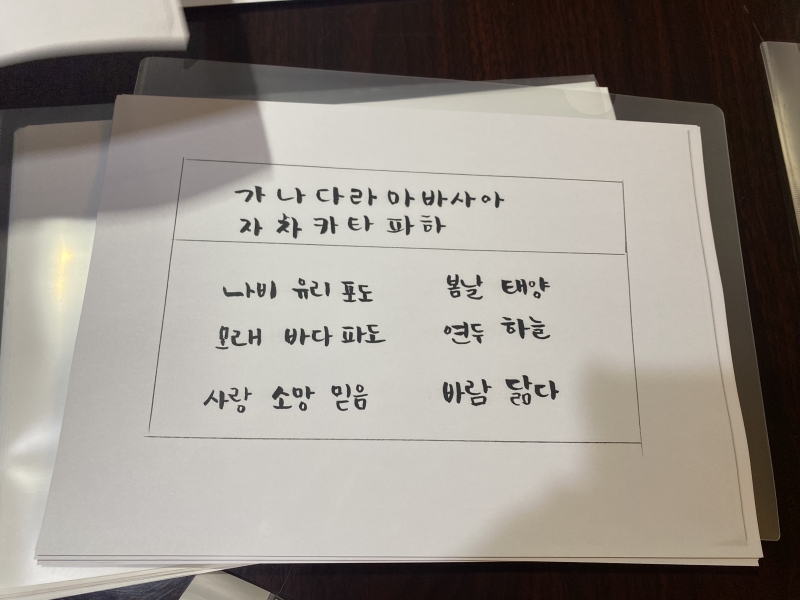 가 나 다 라 마 바 사 아
자 차 카 타 파 하
나비 유리 포도 봄날 태양
모래 바다 파도 연두 하늘
사랑 소망 믿음 바람 닮다